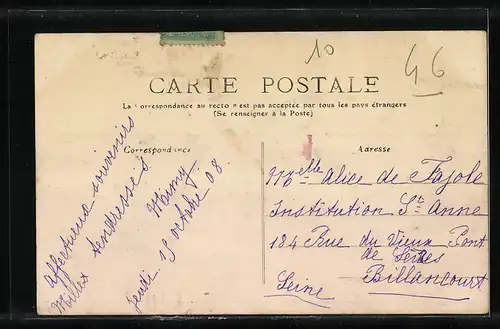 10
46
CARTE POSTALE
La Correspondance au recto n'est pas acceptée par tous les pays étrangers
(Se renseigner à la Poste)
Correspondance
Adresse
Affectueux souvenirs
tendresses
Mimy
jeudi 15 octobre 08
Melle Alice de Fajole
Institution Ste Anne
184 Rue du Vieux Pont
de Sèvres
Billancourt
Seine